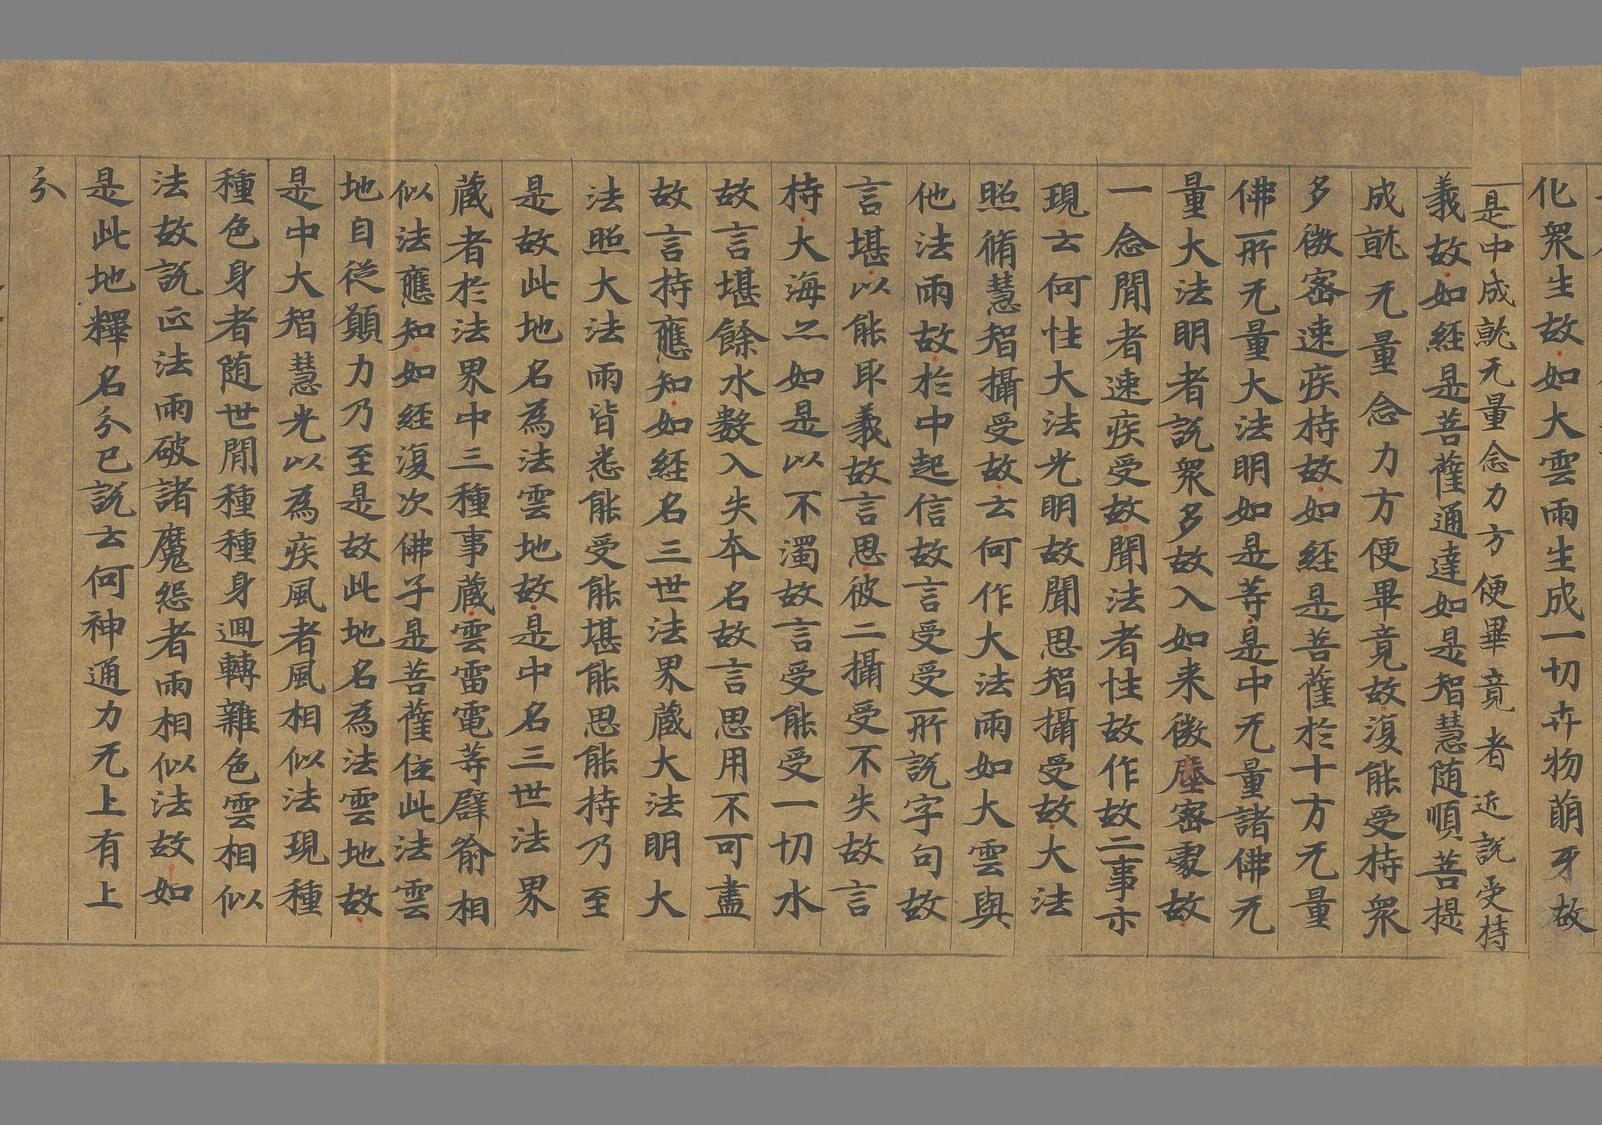 化衆生故如大雲雨生成一切卉物萌牙故
是中成就无量念力方便畢竟者近說受持
義故如経是菩薩通達如是智慧随順菩提
成就无量念力方便畢竟故復能受持衆
多微密速疾持故如経是菩薩於十方无量
佛所无量大法明如是等是中无量諸佛无
量大法明者說衆多故入如来微塵密䖏故
一念聞者速疾受故聞法者性故作故二事示
現云何性大法光明故聞思智攝受故大法
照脩慧智攝受故云何作大法雨如大雲與
他法雨故於中起信故言受受所說字句故
言堪以能取義故言思彼二攝受不失故言
持大海亦如是以不濁故言受能受一切水
故言堪餘水數入失本名故言思用不可盡
故言持應知如経名三世法界蔵大法明大
法照大法雨皆悉能受能堪能思能持乃至
是故此地名為法雲地故是中名三世法界
蔵者於法界中三種事蔵雲雷電等譬喻相
似法應知如経復次佛子是菩薩住此法雲
地自従願力乃至是故此地名為法雲地故
是中大智慧光以為疾風者風相似法現種
種色身者随世間種種身迴轉雜色雲相似
法故說正法雨破諸魔怨者雨相似法故如
是此地釋名分已說云何神通力无上有上
分